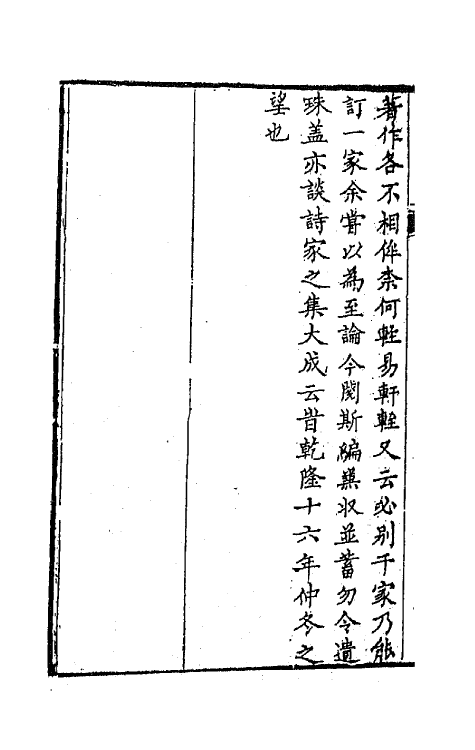 著作各不相侔柰何輊易軒輊又云必别千家乃能
訂一家余甞以為至論今閱斯編兼収並蓄勿令遺
珠盖亦談詩家之集大成云旹乾隆十六年仲冬之
望也